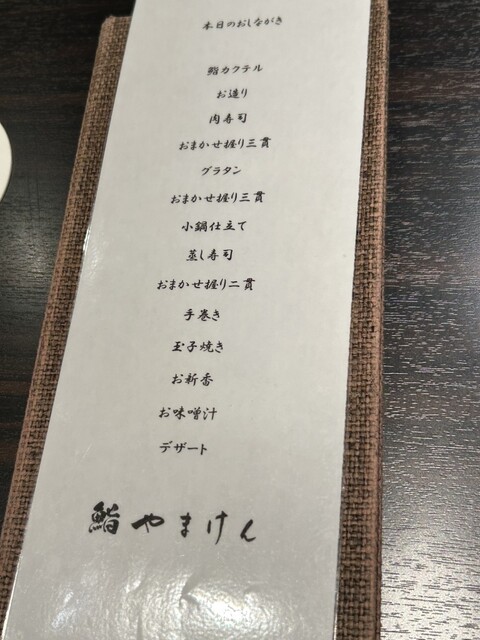 本日のおしながき
鮨カクテル
お造り
肉寿司
おまかせ握り三貫
グラタン
おまかせ握り三貫
小鍋仕立て
蒸し寿司
おまかせ握り二貫
手巻き
玉子焼き
お新香
お味噌汁
デザート
鮨やまけん